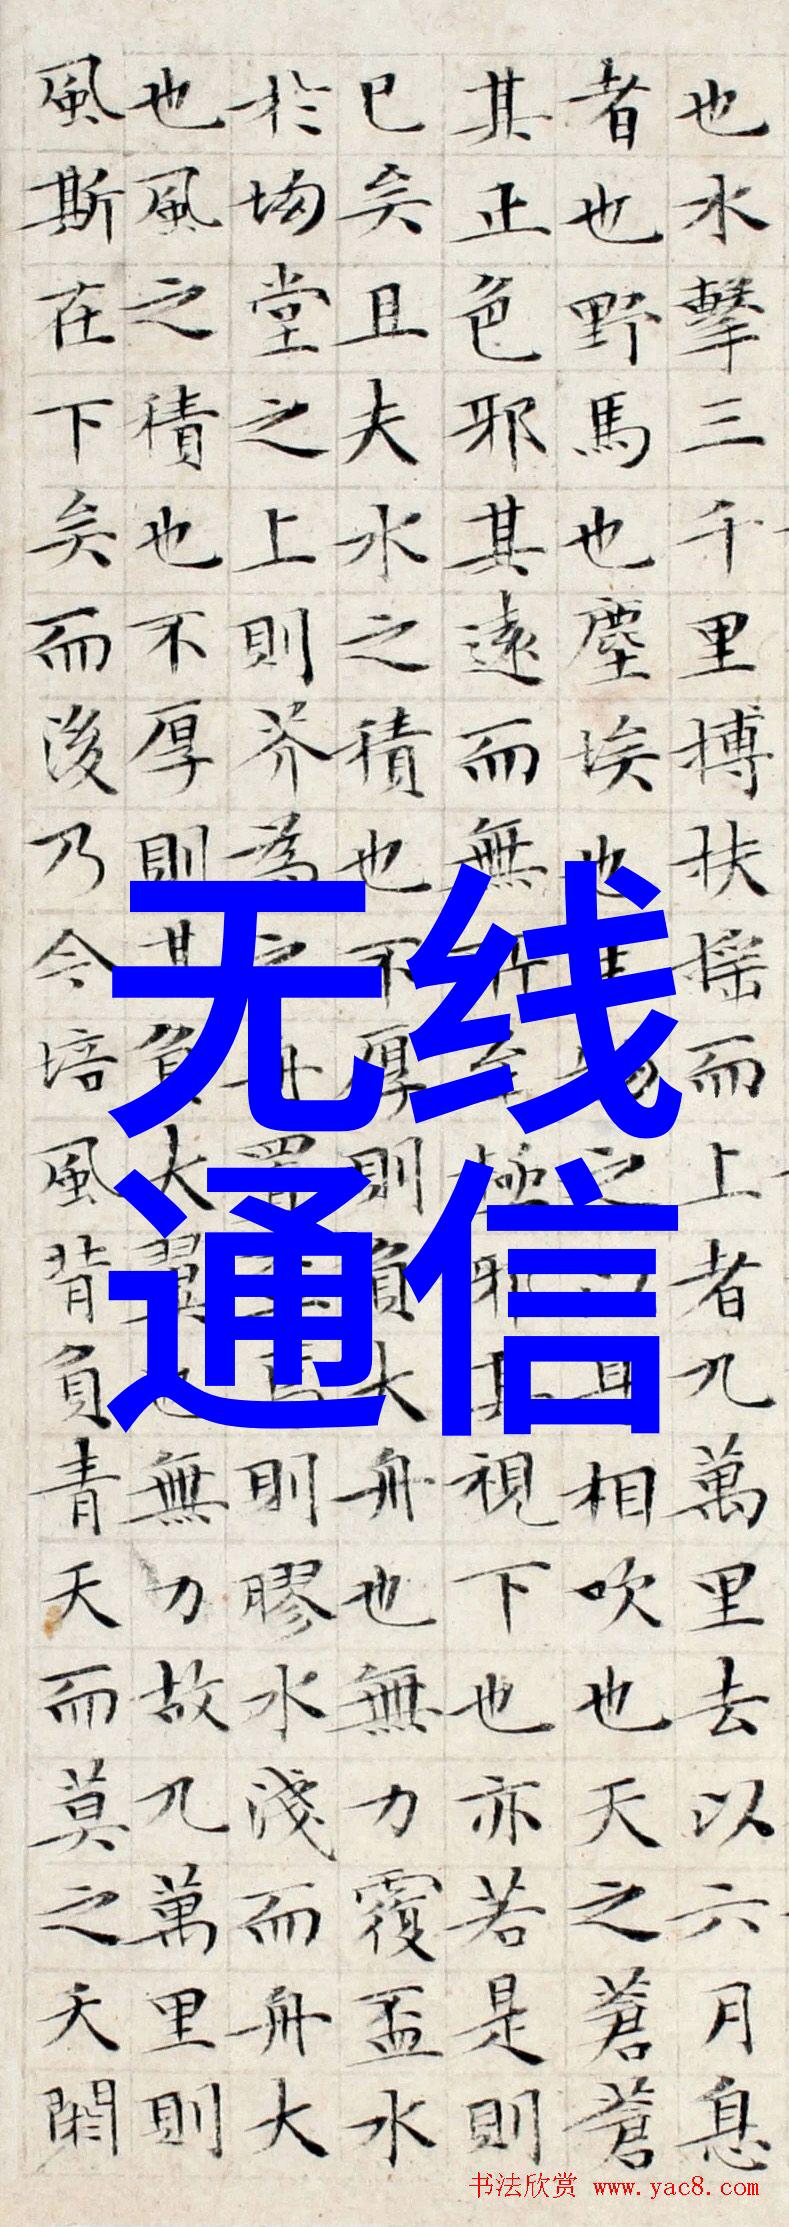 也水擊三千里搏扶摇而上者九萬里去以六月息
者也野馬也塵埃也生物之以息相吹也天之蒼蒼
其正色邪其遠而無所至極邪其視下也亦若是則
已矣且夫水之積也不厚則負大舟也無力覆盃水
於坳堂之上則芥為之舟置盃焉則膠水淺而舟大
也風之積也不厚則其負大翼也無力故九萬里則
風斯在下矣而後乃今培風背負青天而莫之夭閼
无线
通信
书法欣赏 www.yac8.com